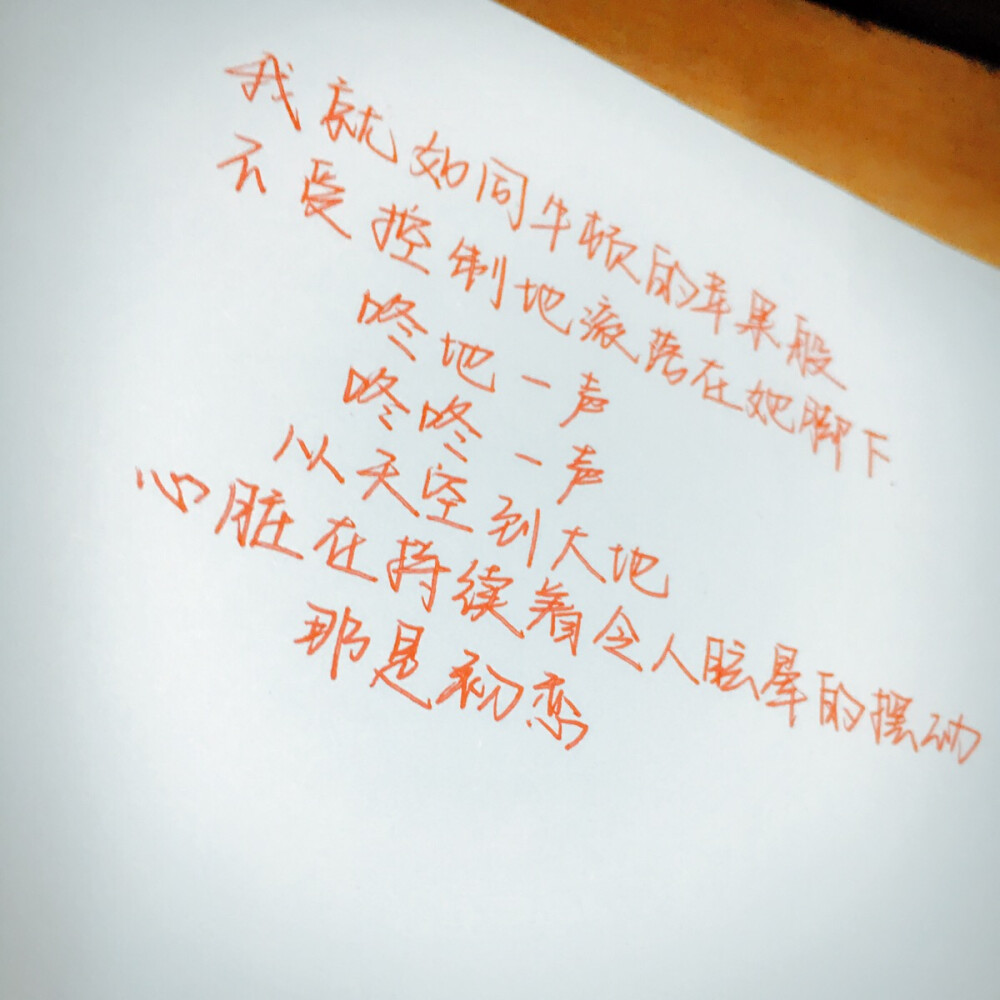 我就如同牛顿的苹果般
不受控制地滚落在她脚下
咚地一声
咚咚一声
从天空到大地
心脏在持续着令人眩晕的摆动
那是初恋